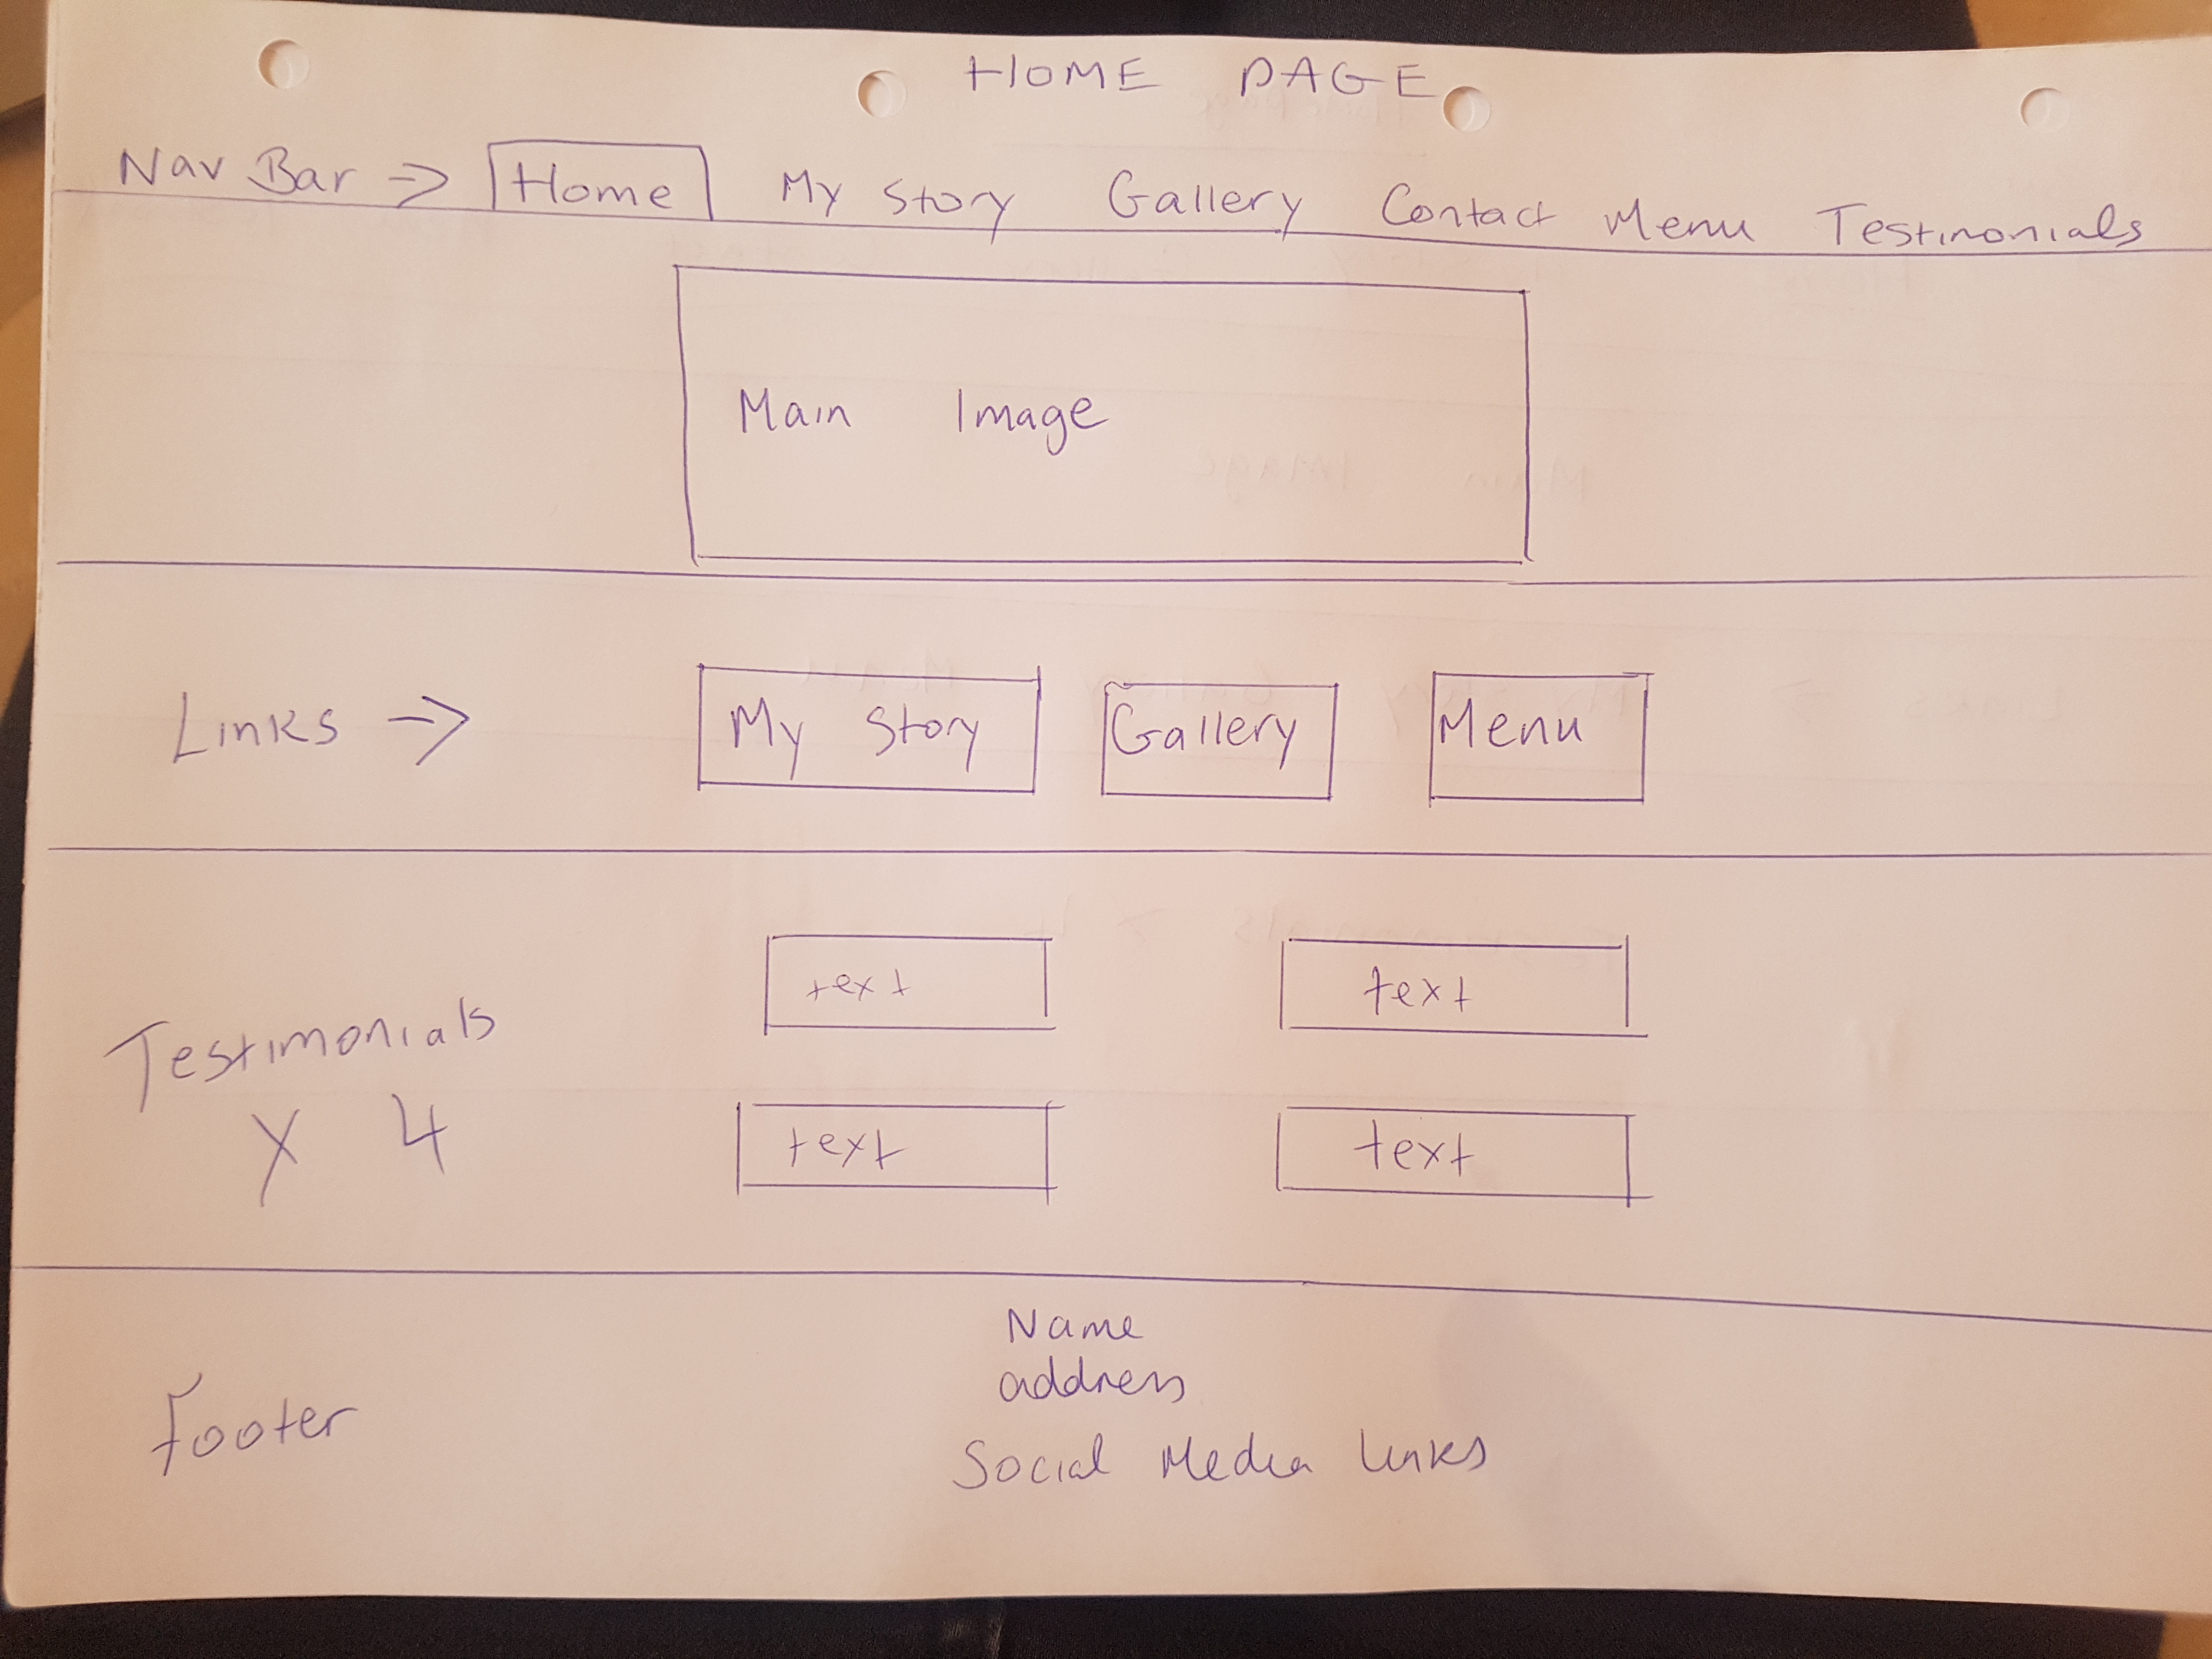 HOME PAGE
Nav Bar => Home My Story Gallery Contact Menu Testimonials
Main Image
Links => My Story Gallery Menu
Testimonials
X 4
text text
text text
Footer
Name
address
Social Media Links